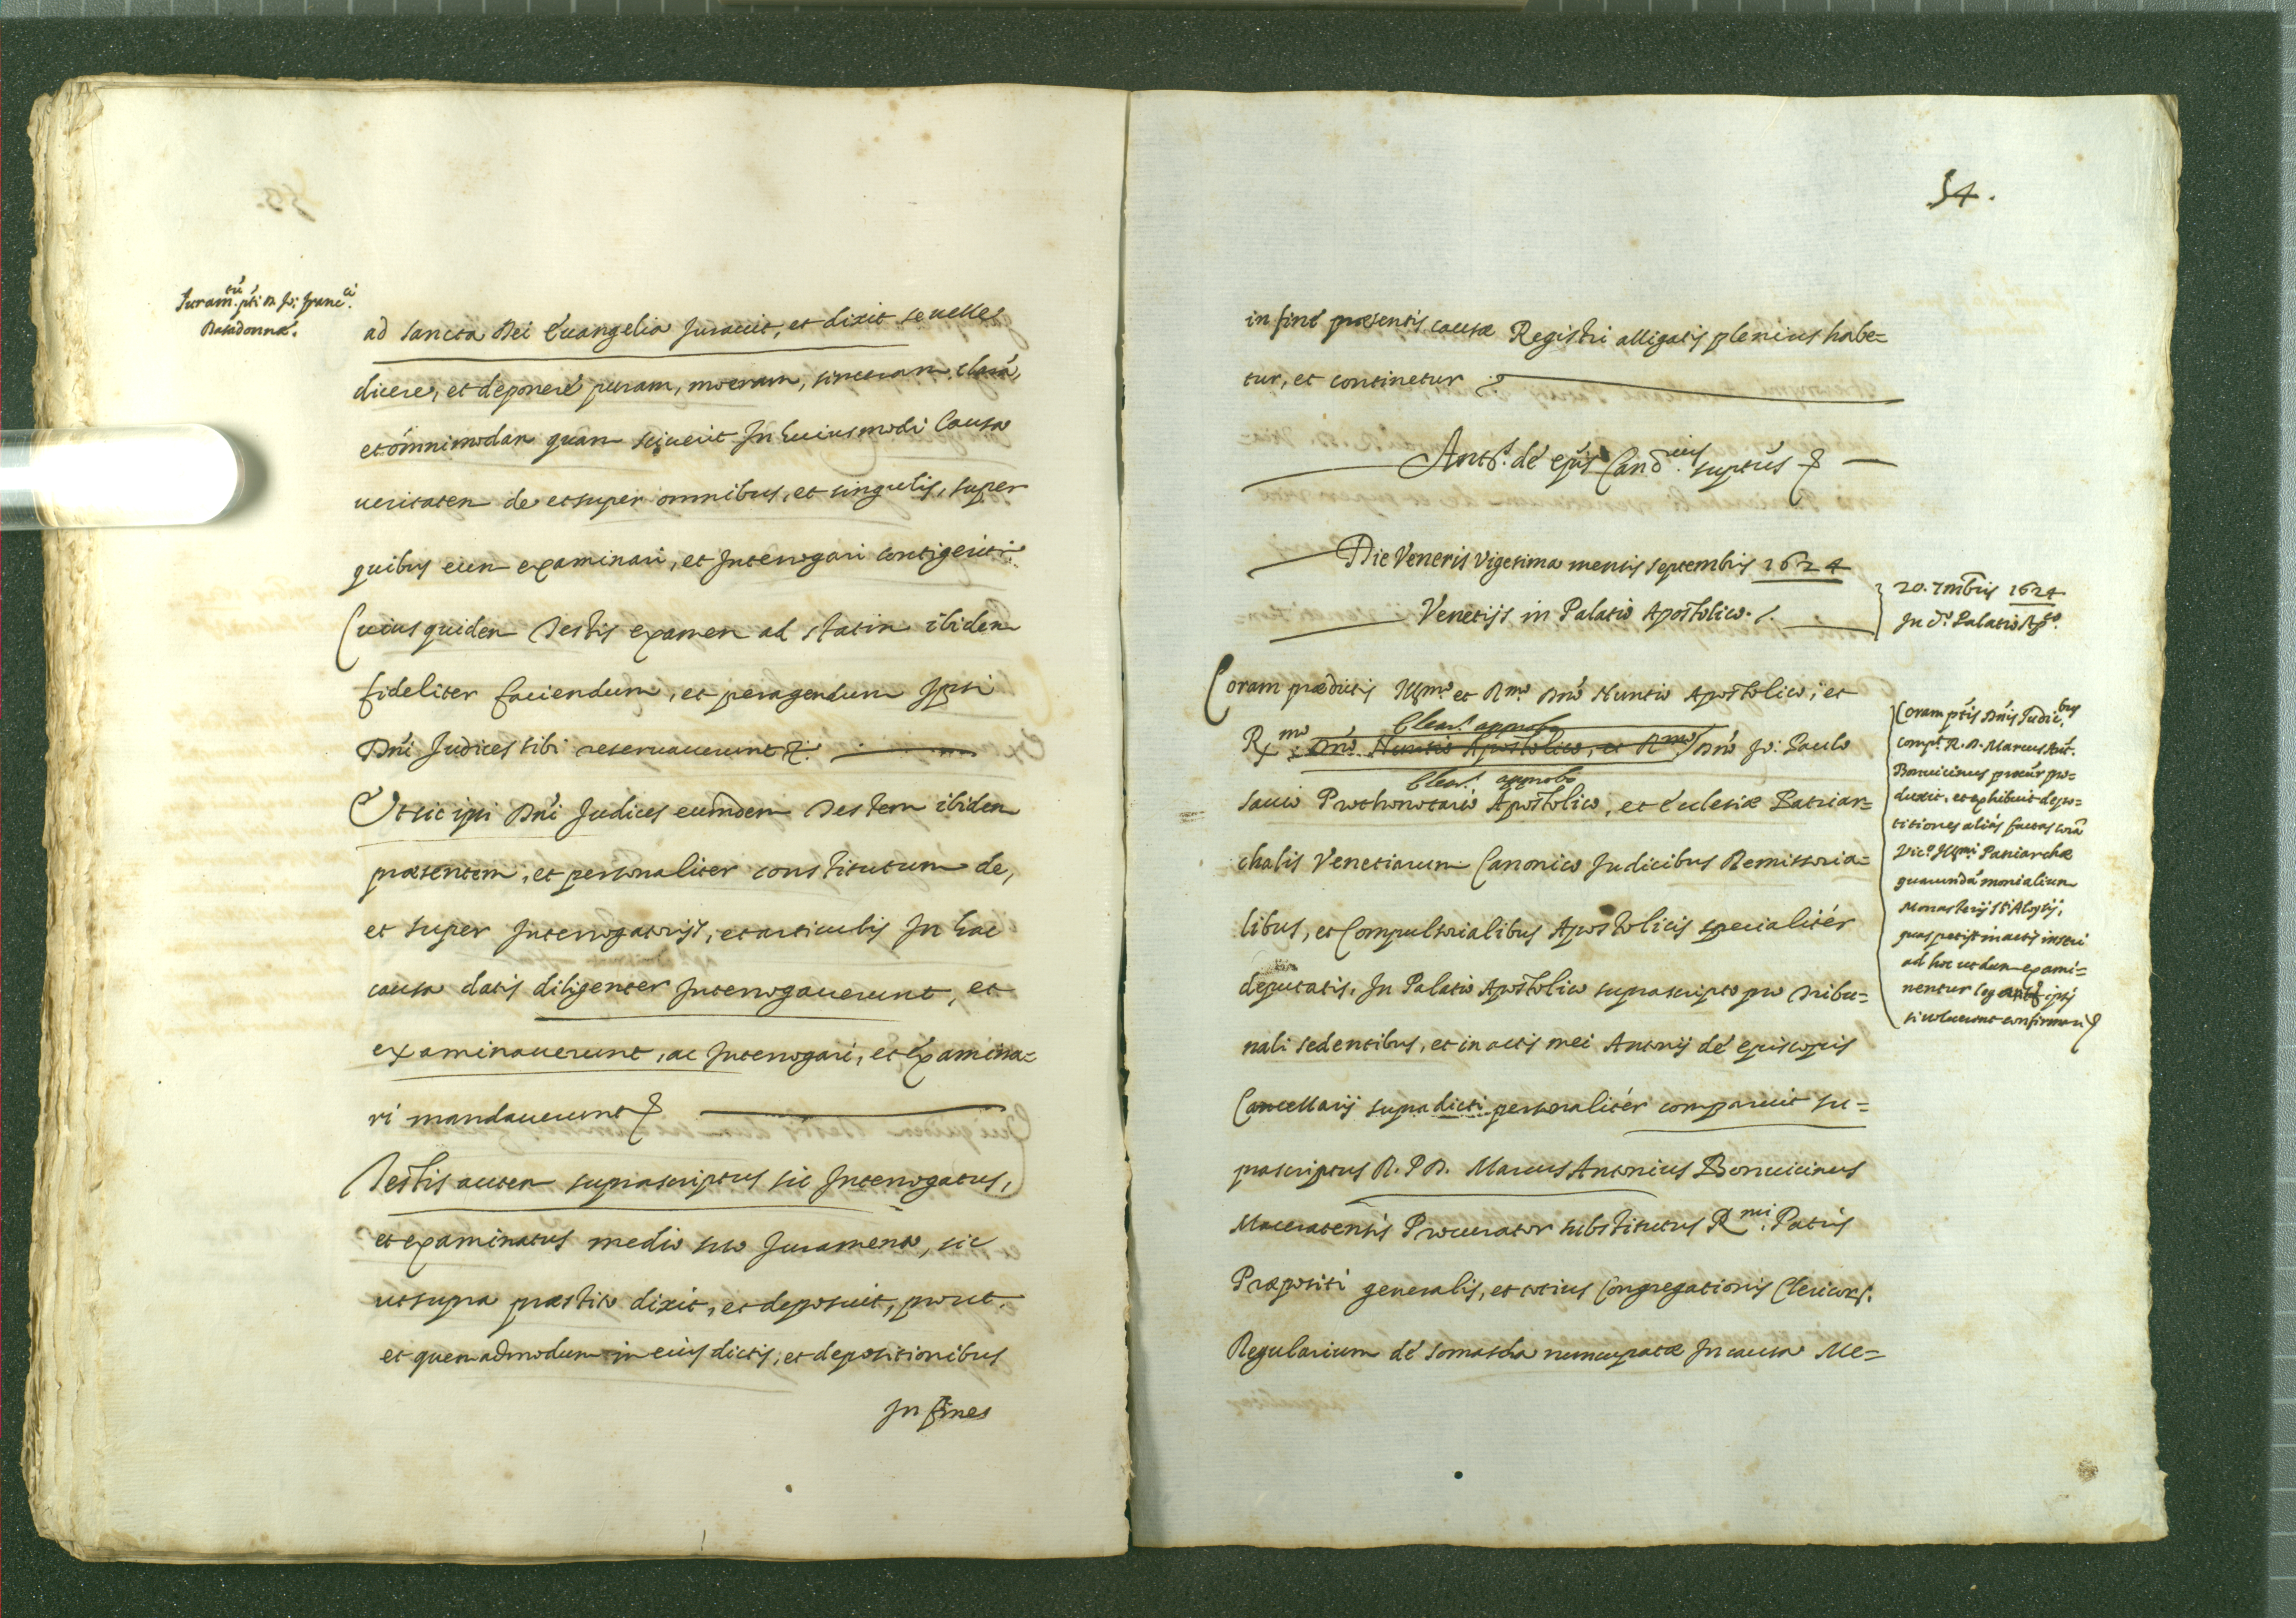 Juram.tũ p̃ti D. Jo: Franc.ci
Basadonnæ.
ad sancta Dei Euangelia Jurauit, et dixit se uelle
dicere, et deponere puram, moeram, sinceram, clarã,
et omnimodam quam sciuerit In huiusmodi Causa
ueritatem de et super omnibus, et singulis, super
quibus eum examinari, et Interrogari contigerit.
Cuius quidem Testis examen ad statim ibidem
fideliter faciendum, et peragendum Ipsi
Dñi Judices sibi reseruauerunt &.
Et sic ipsi Dñi Judices eumdem Testem ibidem
præsentem, et personaliter constitutum de,
et super Interrogatorijs, et articulis In hac
causa datis diligenter Interrogauerunt, et
examinauerunt, ac Interrogari, et Examina=
ri mandauerunt &
Testis autem suprascriptus sic Interrogatus,
et examinatus medio suo Juramento, sic
ut supra præstito dixit, et deposuit, prout,
et quemadmodum in eius dictis, et depositionibus
In fine
54.
in fine præsentis causæ Registri alligatis plenius habe=
tur, et continetur &.
Ant.s de ep̃is Canc.rius sup̃tus &
Die Veneris Vigesima mensis septembris 1624
Venetijs in Palatio Apostolico.
20. 7mbris 1624
In d.o Palatio Ap.co
Coram prædictis Illmo et Rmo Dño Nuntio Apostolico, et
Clear.s approbo
Rmo Dño Nuntio Apostolico, et Rmo Dño Jo: Paulo
Clear.s approbo
Sauio Prothonotario Apostolico, et Ecclesiæ Patriar=
chalis Venetiarum Canonico Judicibus Remissoria=
libus, et Compulsorialibus Apostolicis specialiter
deputatis, In Palatio Apostolico suprascripto pro Tribu=
nali sedentibus, et in actis mei Antonij de episcopis
Cancellarij supradicti personaliter comparuit su=
prascriptus R. P. D. Marcus Antonius Bonuicinus
Maceratensis Procurator substitutus Rmi. Patris
Præpositi generalis, et totius Congregationis Clericor.
Regularium de Somascha nuncupatæ In causa Me=
Coram p̃tis Dñis Judic.bus
comp.t R. D. Marcus Ant.
Bonuicinus procur pro=
duxit, et exhibuit depo=
sitiones aliàs factas corã
Vic.o Illmi Patriarchæ
quarundã monialium
Monasterij Sti Aloysij,
quas petijt in actis inseri
ad hoc ut dum exami=
nentur ipsi
si uoluerint confirmari &